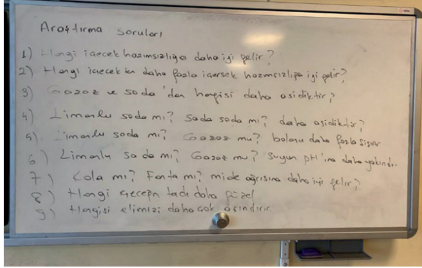 Araştırma soruları
1) Hangi içecek hazımsızlığa daha iyi gelir?
2) Hangi içecekten daha fazla içersek hazımsızlığa iyi gelir?
3) Gazoz ve soda'dan hangisi daha asidiktir?
4) Limonlu soda mı? Sade soda mı? daha asidiktir?
5) Limonlu soda mı? Gazoz mu? balonu daha fazla şişirir
6) Limonlu soda mı? Gazoz mu? suyun pH'ına daha yakındır
7) Cola mı? Fanta mı? mide ağrısına daha iyi gelir?
8) Hangi içeceğin tadı daha güzel
9) Hangisi elimizi daha çok aşındırır